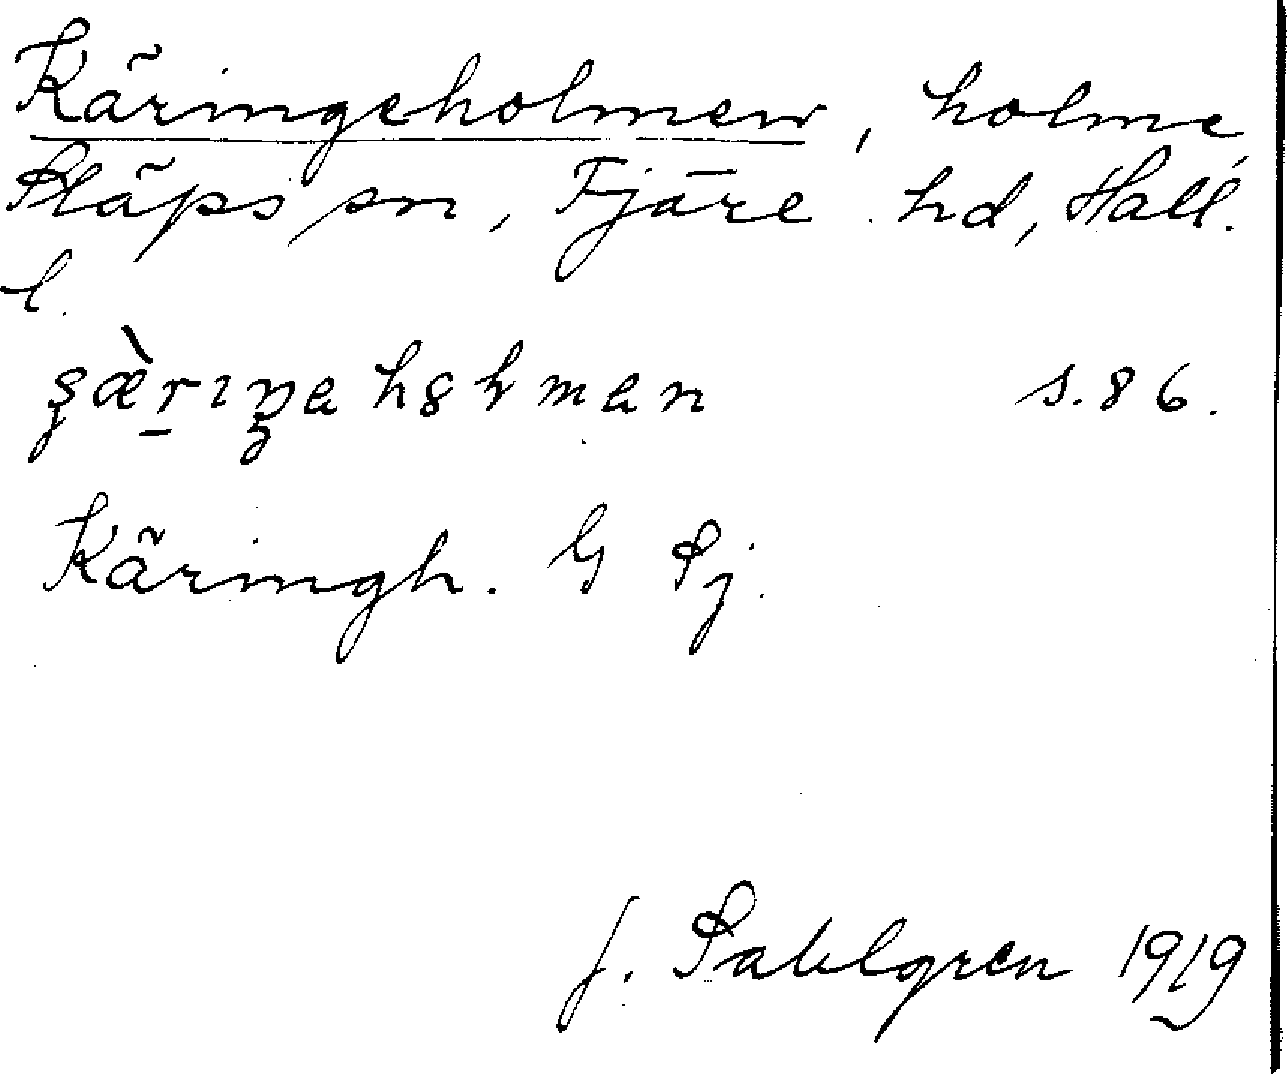 Käringeholmen, holme
Släps sn, Fjäre hd, Hall.
l.
s. 86.
Käringh. G Sj.
J. Sahlgren 1919